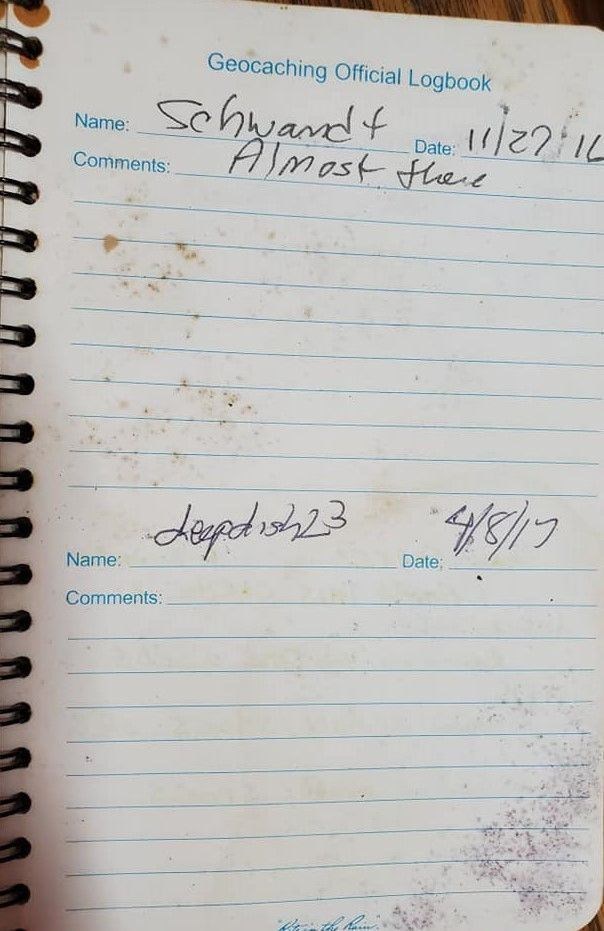 Geocaching Official Logbook
Name: Schwandt Date: 11/27/16
Comments: Almost there
deepdish23 4/8/17
Name: Date:
Comments:
"Rite in the Rain"